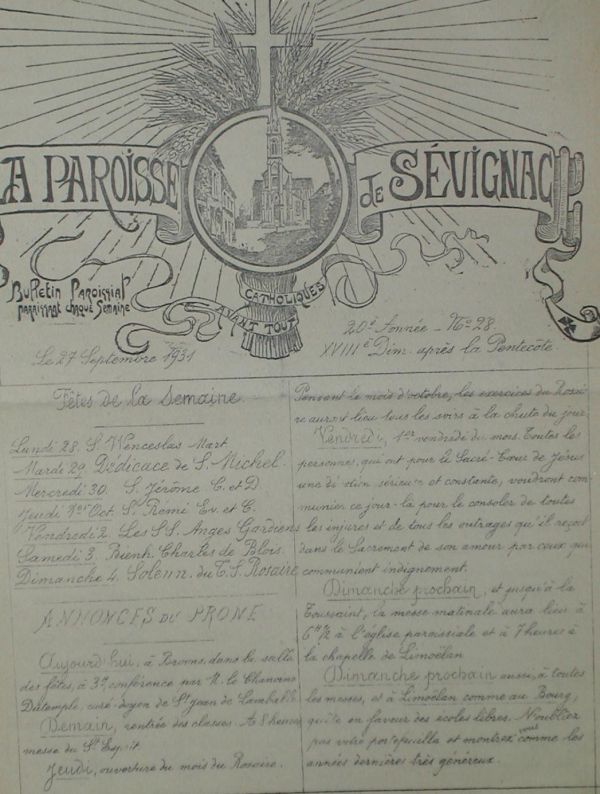 LA PAROISSE de SÉVIGNAC
Bulletin Paroissial
paraissant chaque Semaine
CATHOLIQUES
AVANT TOUT
20e Année - No 28
Le 27 Septembre 1931
XVIIIe Dim. après la Pentecôte
Fêtes de la Semaine
Lundi 28. S. Wenceslas Mart.
Mardi 29. Dédicace de S. Michel.
Mercredi 30. S. Jérôme C. et D.
Jeudi 1er Oct. S. Rémi Ev. et C.
Vendredi 2. Les SS. Anges Gardiens
Samedi 3. Bienh. Charles de Blois.
Dimanche 4. Solenn. du T. S. Rosaire
ANNONCES DU PRONE
Aujourd'hui, à Broons, dans la salle
des fêtes, à 3h, conférence par M. le Chanoine
Dutemple, curé-doyen de St Jean de Lamballe
Demain, rentrée des classes. A 8 heures
messe du St Esprit.
Jeudi, ouverture du mois du Rosaire.
Pendant le mois d'octobre, les exercices du Rosai-
re auront lieu tous les soirs à la chute du jour.
Vendredi, 1er vendredi du mois. Toutes les
personnes, qui ont pour le Sacré-Cœur de Jésus
une dévotion sérieuse et constante, voudront com-
munier ce jour-là pour le consoler de toutes
les injures et de tous les outrages qu'il reçoit
dans le Sacrement de son amour par ceux qui
communient indignement.
Dimanche prochain, et jusqu'à la
Toussaint, la messe matinale aura lieu à
6h 1/2 à l'église paroissiale et à 7 heures à
la chapelle de Limoëlan
Dimanche prochain aussi, à toutes
les messes, et à Limoëlan comme au Bourg,
quête en faveur des écoles libres. N'oubliez
pas votre portefeuille et montrez vous comme les
années dernières très généreux.